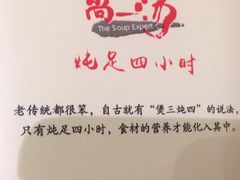 尚一汤
The Soup Expert
炖足四小时
老传统都很笨，自古就有“煲三炖四”的说法，
只有炖足四小时，食材的营养才能化入其中。